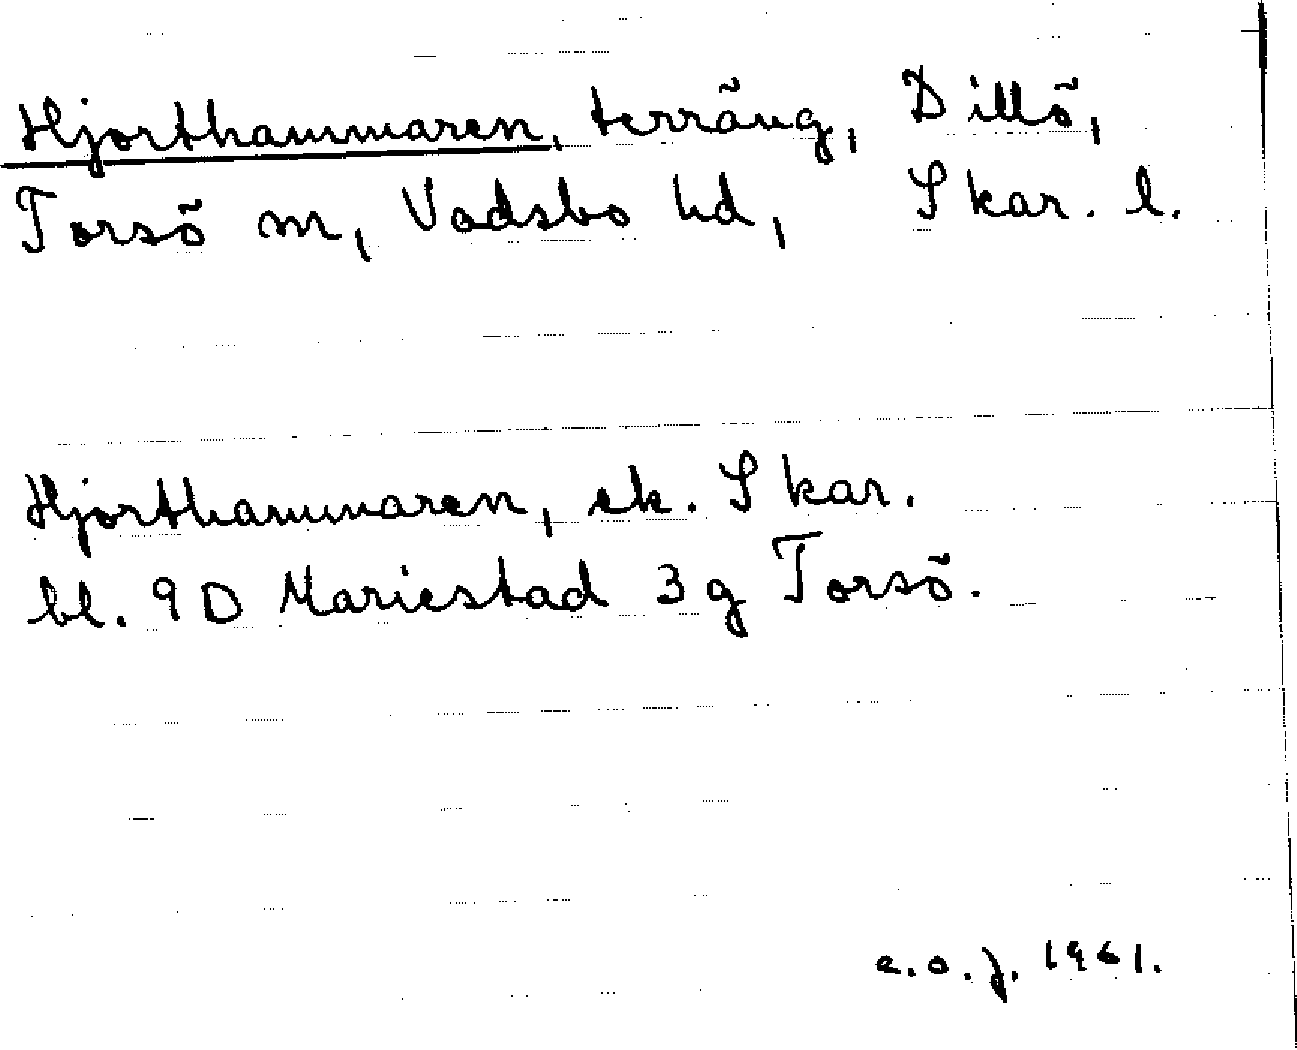 Hjorthammaren, terräng, Dillö,
Torsö sn, Vadsbo hd, Skar. l.
Hjorthammaren, ek. Skar.
bl. 9 D Mariestad 3 g Torsö.
c.o.j. 1961.